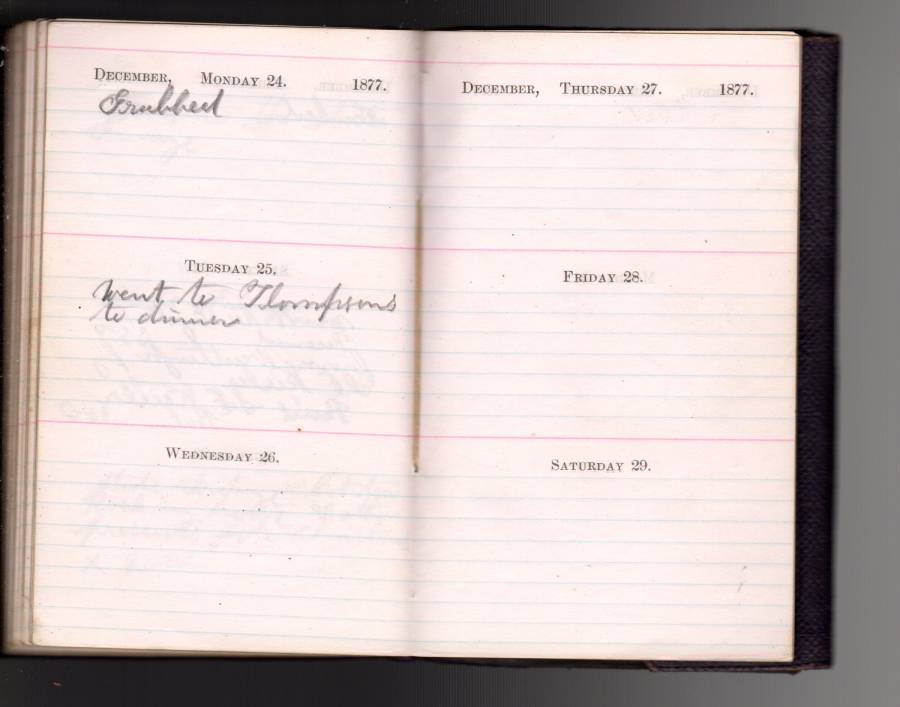 DECEMBER, MONDAY 24. 1877.
Grubbed
TUESDAY 25.
Went to Thompsons
to dinner
WEDNESDAY 26.
DECEMBER, THURSDAY 27. 1877.
FRIDAY 28.
SATURDAY 29.